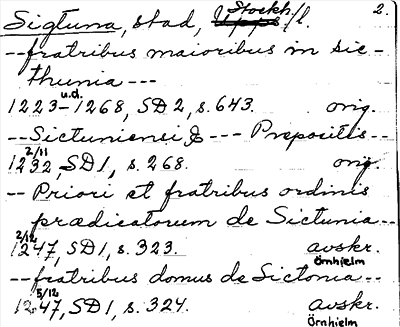 Sigtuna, stad, Stockh/l. 2.
-- fratribus maioribus in sic-
thunia ---
u.d.
1223-1268, SD 2, s. 643. orig.
-- Sictuniensi & --- Prepositis --
2/11
1232, SD 1, s. 268. orig.
-- Priori et fratribus ordinis
prædicatorum de Sictunia --
2/12
1247, SD 1, s. 323. avskr.
Örnhielm
-- fratribus domus de Sictonia --
5/12
1247, SD 1, s. 324. avskr.
Örnhielm